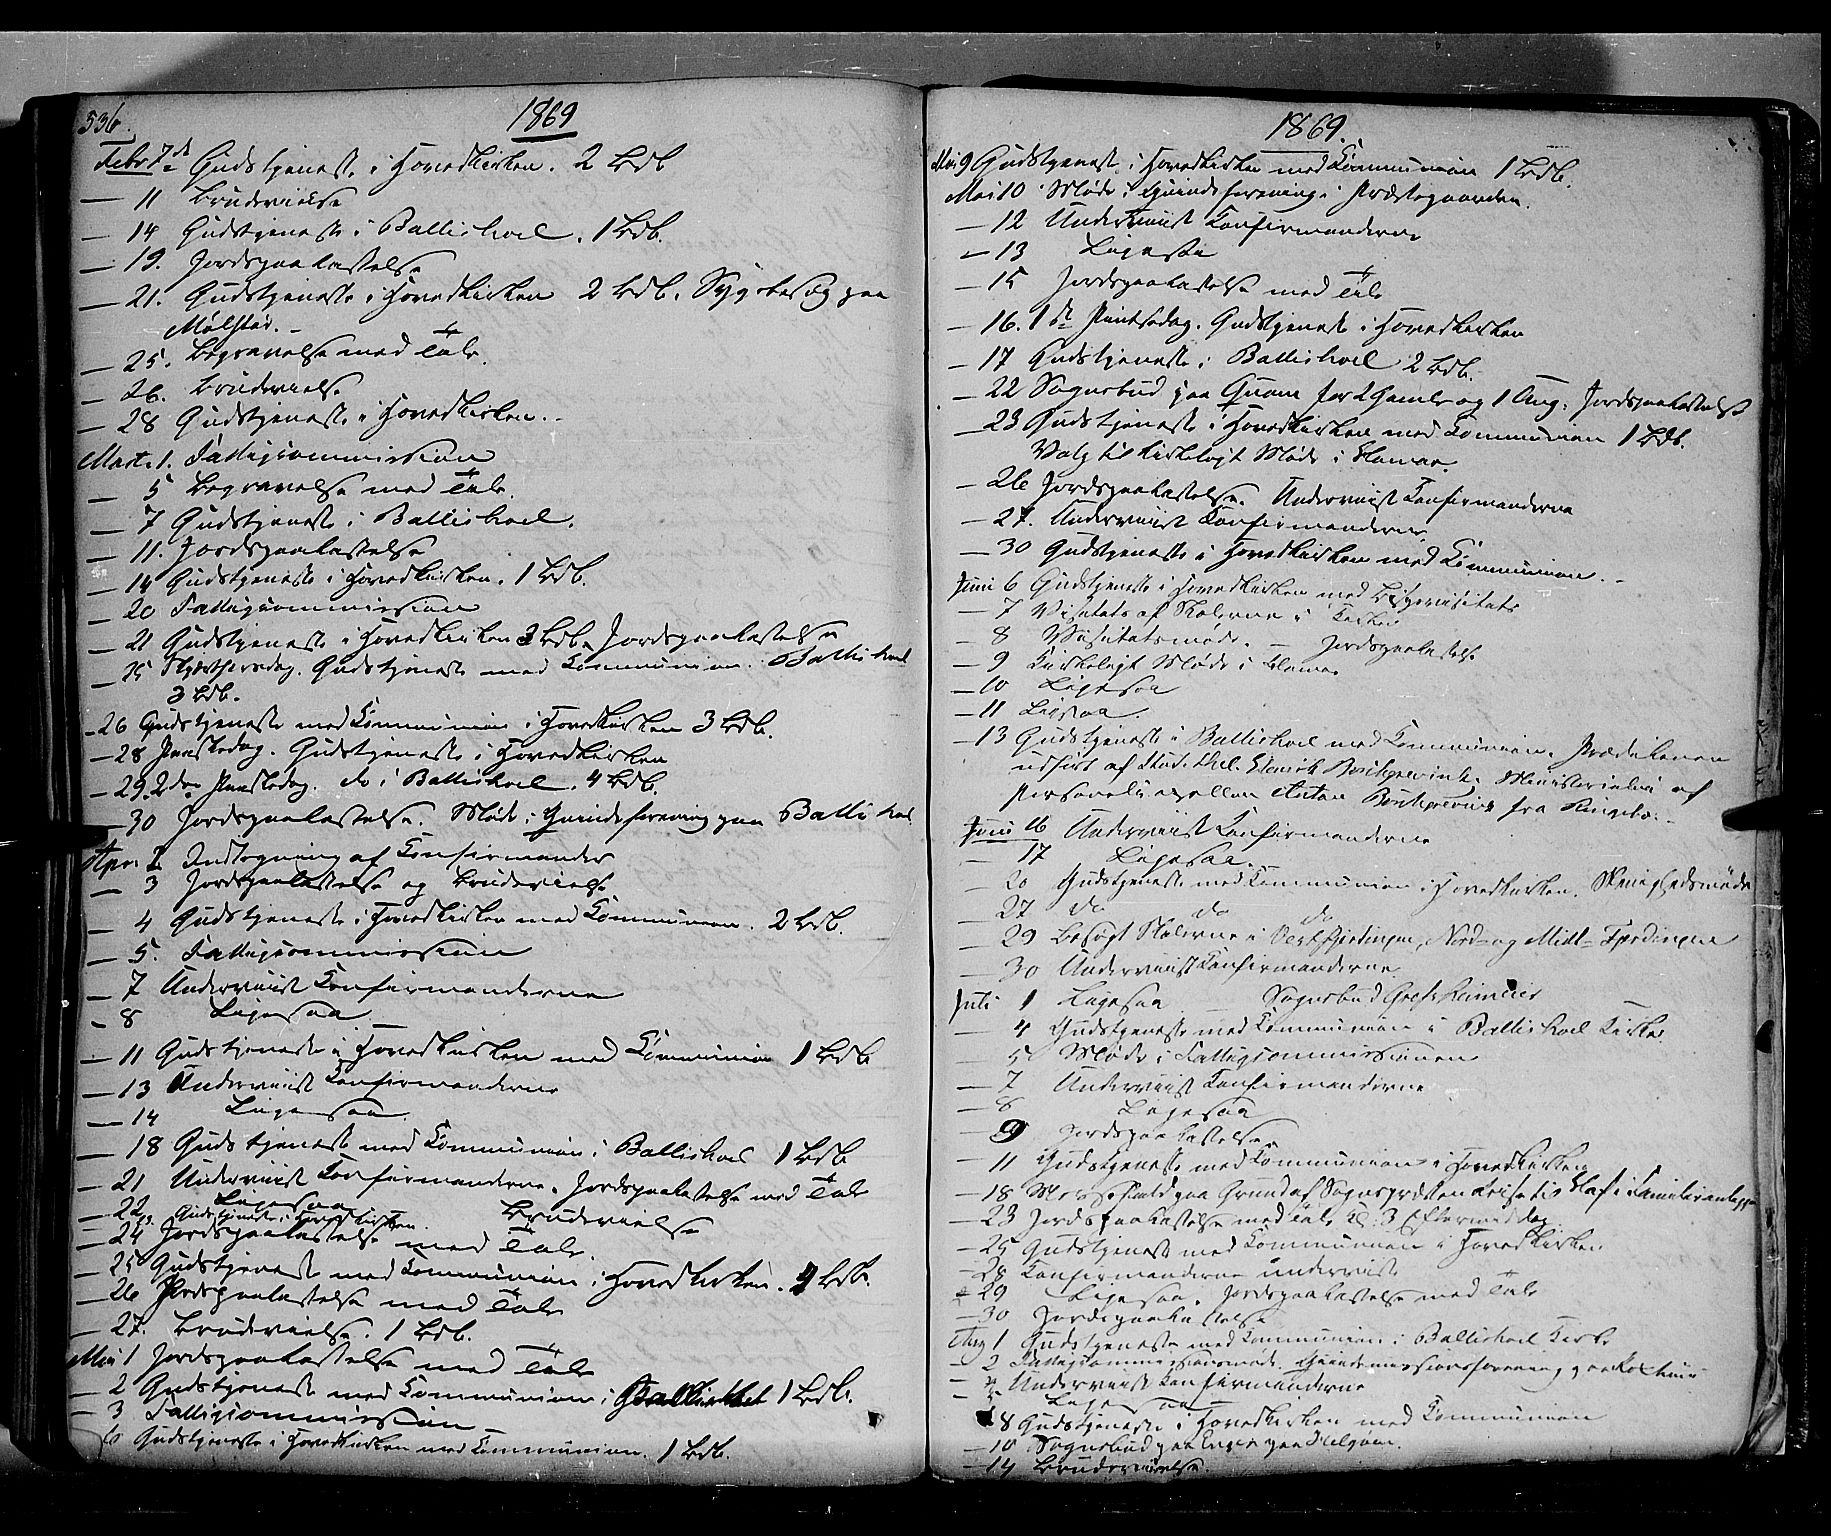 536.
1869
Febr 7de Gudstjeneste i Hovedkirken. 2 Bdb
— 11 Brudevielse
— 14 Gudstjeneste i Ballishoel. 1 Bdb.
— 19. Jordspaakastelse
— 21. Gudstjeneste i Hovedkirken 2 Bdb. Sygebesøg paa
Mølstad. –
— 25. Begravelse med Tale.
— 26. Brudevielse
— 28 Gudstjeneste i Hovedkirken. –
Marts 1. Fattigcommission
— 5 Begravelse med Tale.
— 7 Gudstjeneste i Ballishoel.
— 11. Jordspaakastelse
— 14 Gudstjeneste i Hovedkirken. 1 Bdb.
— 20 Fattigcommission
— 21 Gudstjeneste i Hovedkirken 3 Bdb. Jordspaakastelse
— 25 Skjærthorsdag. Gudstjeneste med Communion. Ballishoel
3 Bdb.
- 26 Gudstjeneste med Communion i Hovedkirken 3 Bdb.
— 28 Paaskedag. Gudstjeneste i Hovedkirken
— 29. 2den Paaskedag. do i Ballishoel. 4 Bdb.
— 30 Jordspaakastelse. Møde i Qvindeforening paa Ballishoel
Apr. 2 Indtegning af Confirmander
— 3 Jordspaakastelse og Brudevielse
— 4 Gudstjeneste i Hovedkirken med Communion. 2 Bdb.
— 5. Fattigcommission
— 7 Underviist Confirmanderne
- 8 Ligesaa
— 11 Gudstjeneste i Hovedkirken med Communion 1 Bdb
— 13 Underviist Confirmanderne
— 14 Ligesaa
— 18 Gudstjeneste med Communion i Ballishoel 1 Bdb
— 21 Underviist Confirmanderne. Jordspaakastelse med Tale
— 22 Ligesaa Brudevielse
Gudstjeneste i Hovedkirken.
— 24 Jordspaakastelse med Tale.
— 25 Gudstjeneste med Communion i Hovedkirken. 4 Bdb.
— 26 Jordspaakastelse med Tale
— 27. Brudevielse. 1 Bdb.
Mai 1 Jordspaakastelse med Tale
— 2 Gudstjeneste med Communion i 1 Bdb.
— 3 Fattigcommission
6 Gudstjeneste i Hovedkirken med Communion. 1 Bdb.
1869.
Mai 9 Gudstjeneste i Hovedkirken med Communion 1 Bdb.
Mai 10 Møde i Qvindeforening i Præstegaarden.
— 12 Underviist Confirmanderne
— 13 Ligesaa
— 15 Jordspaakastelse med Tale
— 16. 1ste Pintsedag. Gudstjeneste i Hovedkirken
— 17 Gudstjeneste i Ballishoel 2 Bdb.
— 22 Sognebud paa Qvam for 2 Gamle og 1 Ung. Jordspaakastelse
— 23 Gudstjeneste i Hovedkirken med Communion 1 Bdb.
Valg til kirkeligt Møde i Hamar.
— 26 Jordspaakastelse. Underviist Confirmanderne
— 27. Underviist Confirmanderne
— 30 Gudstjeneste i Hovedkirken med Communion. -
Juni 6 Gudstjeneste i Hovedkirken med Bispevisitats
— 7 Visitats af Skolerne i Kirken
— 8 Visitatsmøde. — Jordspaakastelse
— 9 Kirkeligt Møde i Hamar
— 10 Ligesaa
— 11 Ligesaa.
— 13 Gudstjeneste i Ballishoel med Communion. Prædikenen
udført af Stud. theol. Ministerialia af
Personelcapellan Anton fra Ringebo. -
Juni 16 Underviist Confirmanderne
— 17 Ligesaa.
— 20 Gudstjeneste med Communion i Hovedkirken.
— 27 do do do
— 29 Besøgt Skolerne i Vestfjerdingen, Nord- og Midt-Fjerdingen
— 30 Underviist Confirmanderne
Juli 1 Ligesaa Sognebud
— 4 Gudstjeneste med Communion i Ballishoel Kirke.
— 5 Møde i Fattigcommissionen
— 7 Underviist Confirmanderne
— 8 Ligesaa
— 9 Jordspaakastelse.
— 11 Gudstjeneste med Communion i Hovedkirken
— 18 Messefald paa Grund af Sognepræstens Reise til i Familieanliggender
— 23 Jordspaakastelse med Tale Kl. 3 Eftermiddag
— 25 Gudstjeneste med Communion i Hovedkirken
— 28 Confirmanderne underviste
— 29 Ligesaa. Jordspaakastelse med Tale
— 30 Jordspaakastelse
Aug 1 Gudstjeneste med Communion i Ballishoel Kirke
— 2 Fattigcommissionsmøde. Qvindemissionsforening paa
— Underviist Confirmanderne
— Ligesaa —
8 Gudstjeneste i Hovedkirken med Communion
— 10 Sognebud paa paa Helgøen.
— 14 Brudevielse.